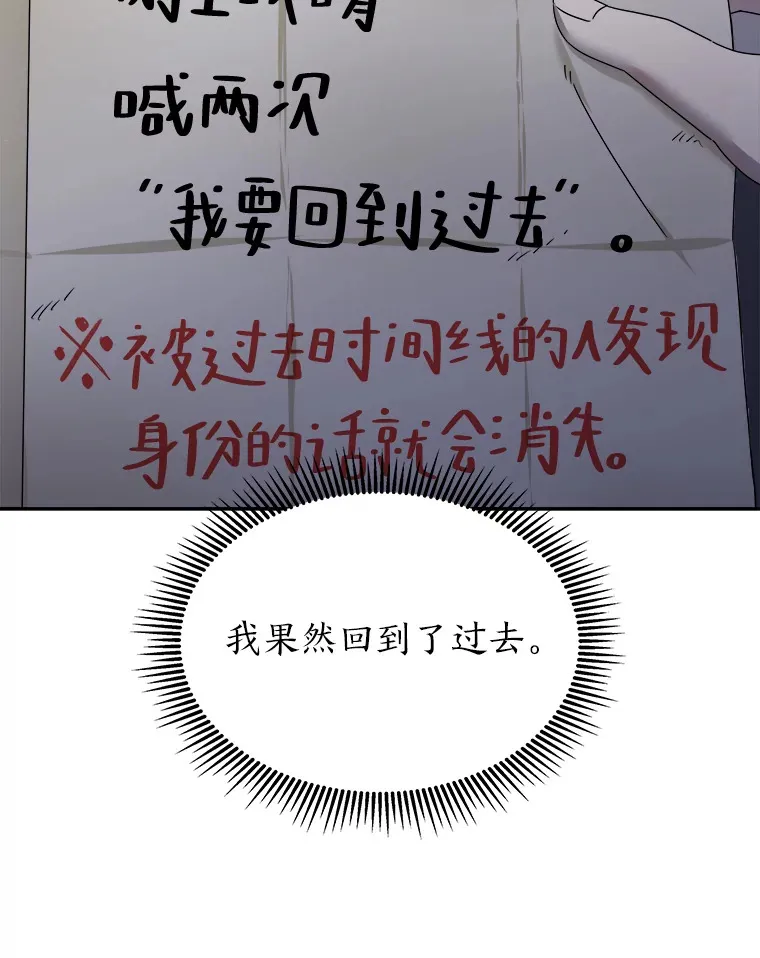 喊两次
“我要回到过去”。
※被过去时间线的人发现
身份的话就会消失。
我果然回到了过去。